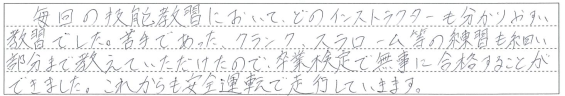 毎回の技能教習において、どのインストラクターも分かりやすい
教習でした。苦手であった、クランク、スラローム等の練習も細い
部分まで教えていただけたので、卒業検定で無事に合格することが
できました。これからも安全運転で走行していきます。